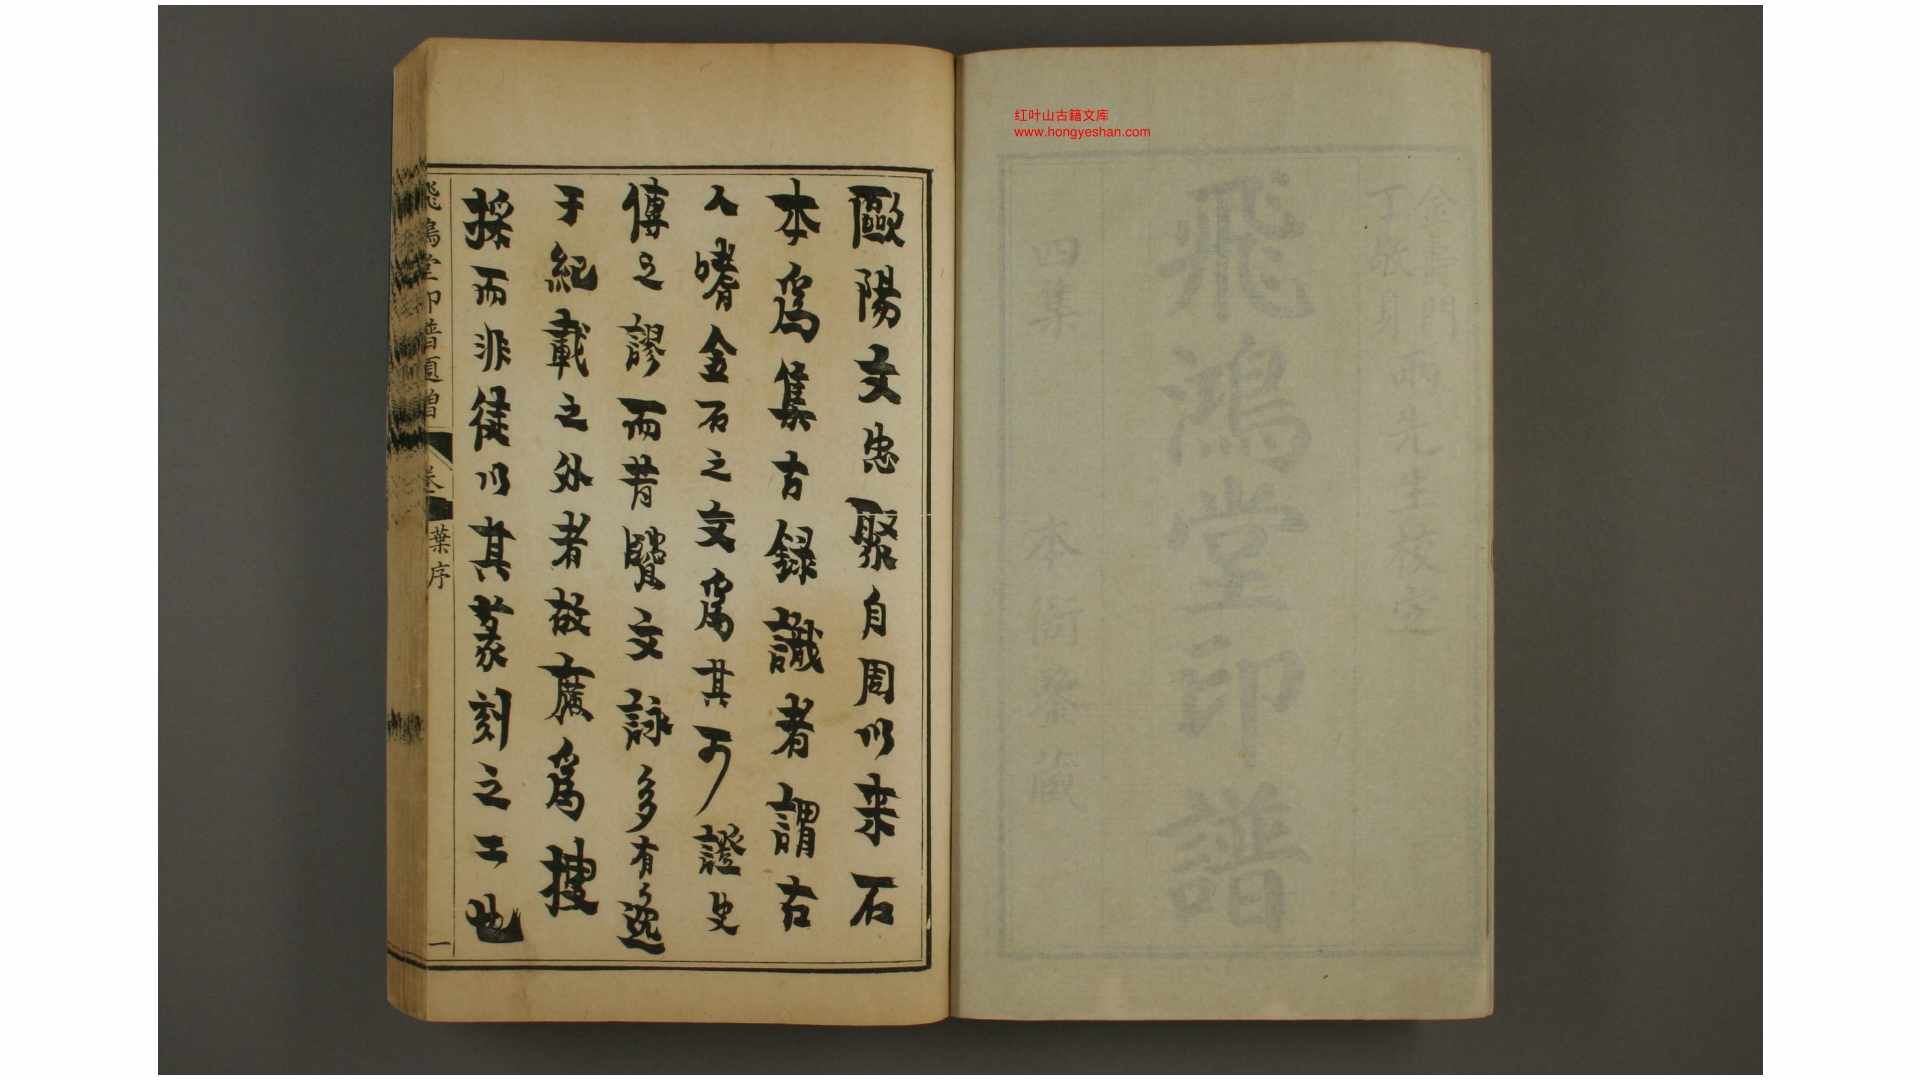 红叶山古籍文库
www.hongyeshan.com
金壽門
丁敬身
兩先生校定
飛鴻堂印譜
四集 本衙藏
歐陽文忠聚自周以来石
本爲集古録識者謂古
人嗜金石之文爲其可證史
傳之謬而昔賢文詠多有逸
于紀載之外者故廣爲搜
採而非徒以其篆刻之工也
飛鴻堂印譜題 卷 葉序 一